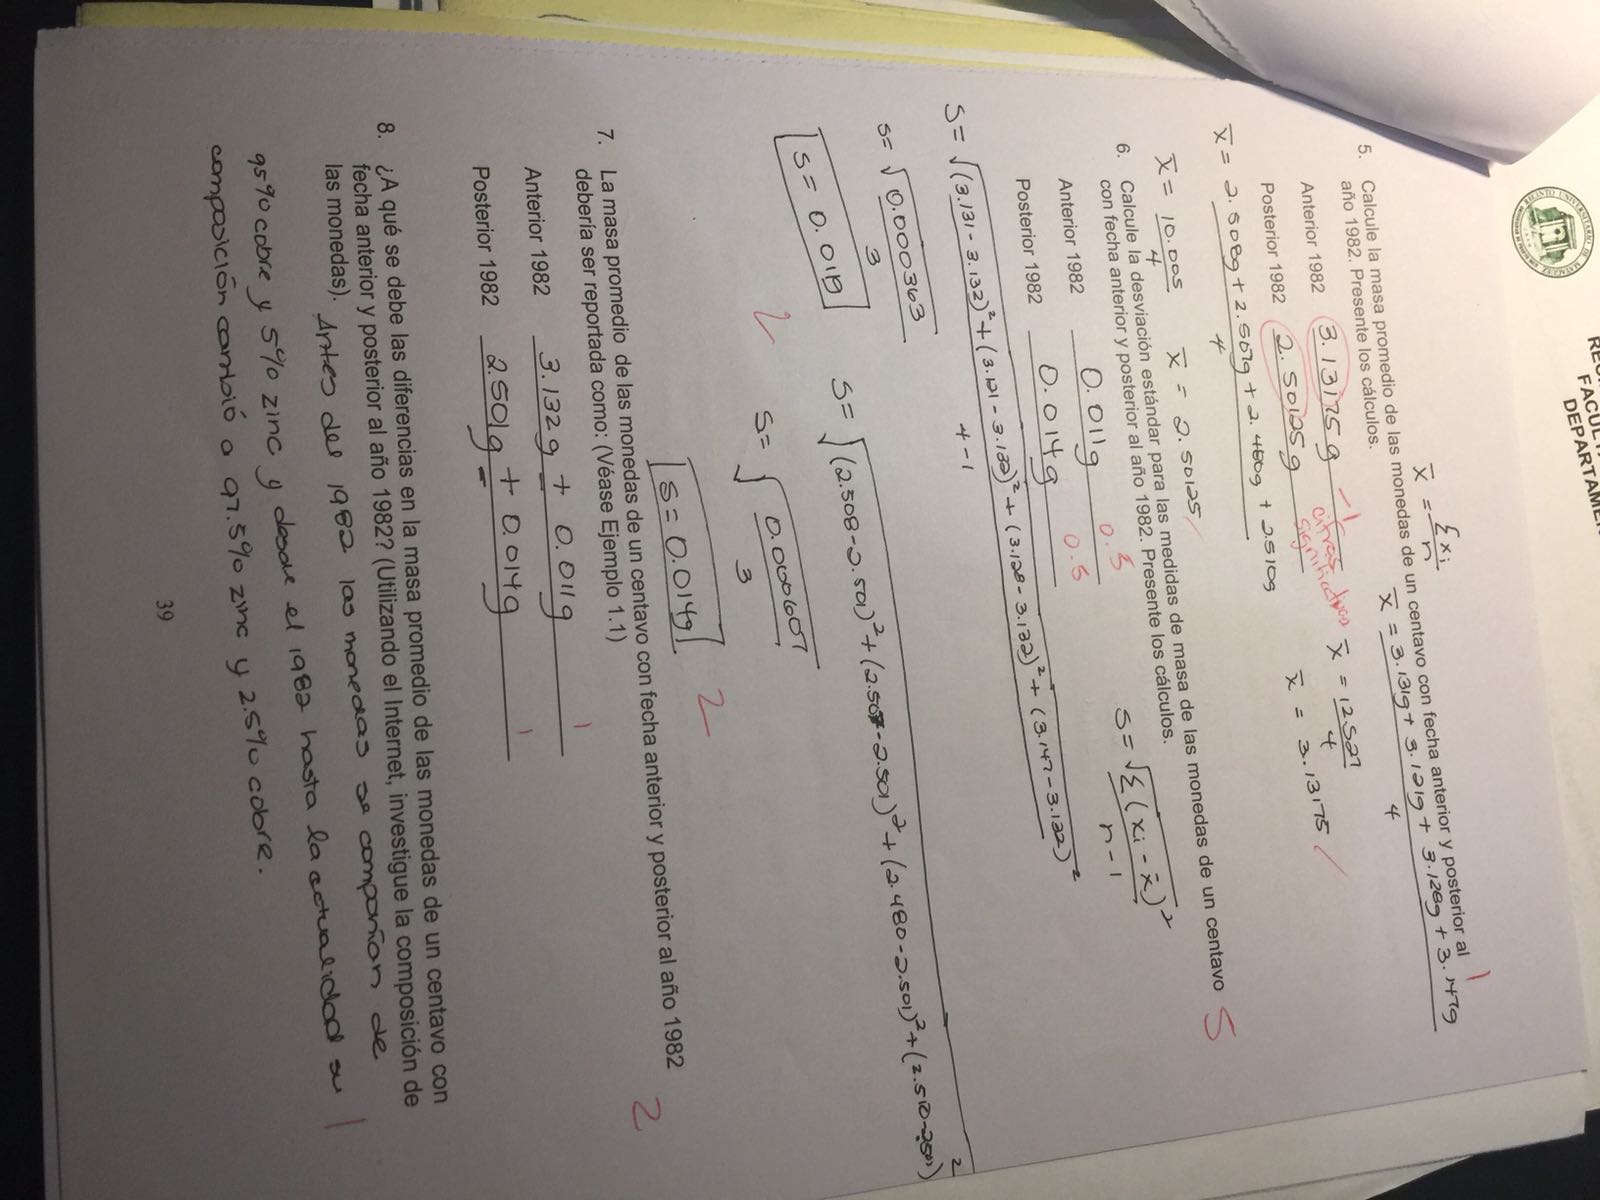 RECINTO UNIVERSITARIO DE MAYAGÜEZ
FACULT
DEPARTAMEN
x̄ = Σxi / n
5. Calcule la masa promedio de las monedas de un centavo con fecha anterior y posterior al 1
año 1982. Presente los cálculos.
x̄ = 3.131g + 3.121g + 3.128g + 3.147g / 4
Anterior 1982 3.13175g -1 cifras significativas
x̄ = 12.527 / 4
Posterior 1982 2.50125g
x̄ = 3.13175 /
x̄ = 2.508g + 2.507g + 2.480g + 2.510g / 4
x̄ = 10.005 / 4
x̄ = 2.50125 /
6. Calcule la desviación estándar para las medidas de masa de las monedas de un centavo 5
con fecha anterior y posterior al año 1982. Presente los cálculos.
Anterior 1982 0.011g 0.5
s = √Σ(xi - x̄)² / n-1
Posterior 1982 0.014g 0.5
s = √(3.131-3.132)² + (3.121-3.132)² + (3.128-3.132)² + (3.147-3.132)² / 4-1
s = √0.000363 / 3
s = √(2.508-2.501)² + (2.507-2.501)² + (2.480-2.501)² + (2.510-2.501)²
s = 0.011g
2
s = √0.000607 / 3
s = 0.014g
2
7. La masa promedio de las monedas de un centavo con fecha anterior y posterior al año 1982 2
debería ser reportada como: (Véase Ejemplo 1.1)
Anterior 1982 3.132g ± 0.011g 1
Posterior 1982 2.501g ± 0.014g 1
8. ¿A qué se debe las diferencias en la masa promedio de las monedas de un centavo con
fecha anterior y posterior al año 1982? (Utilizando el Internet, investigue la composición de
las monedas). Antes del 1982 las monedas se componían de
95% cobre y 5% zinc y desde el 1982 hasta la actualidad su 1
composición cambió a 97.5% zinc y 2.5% cobre.
39